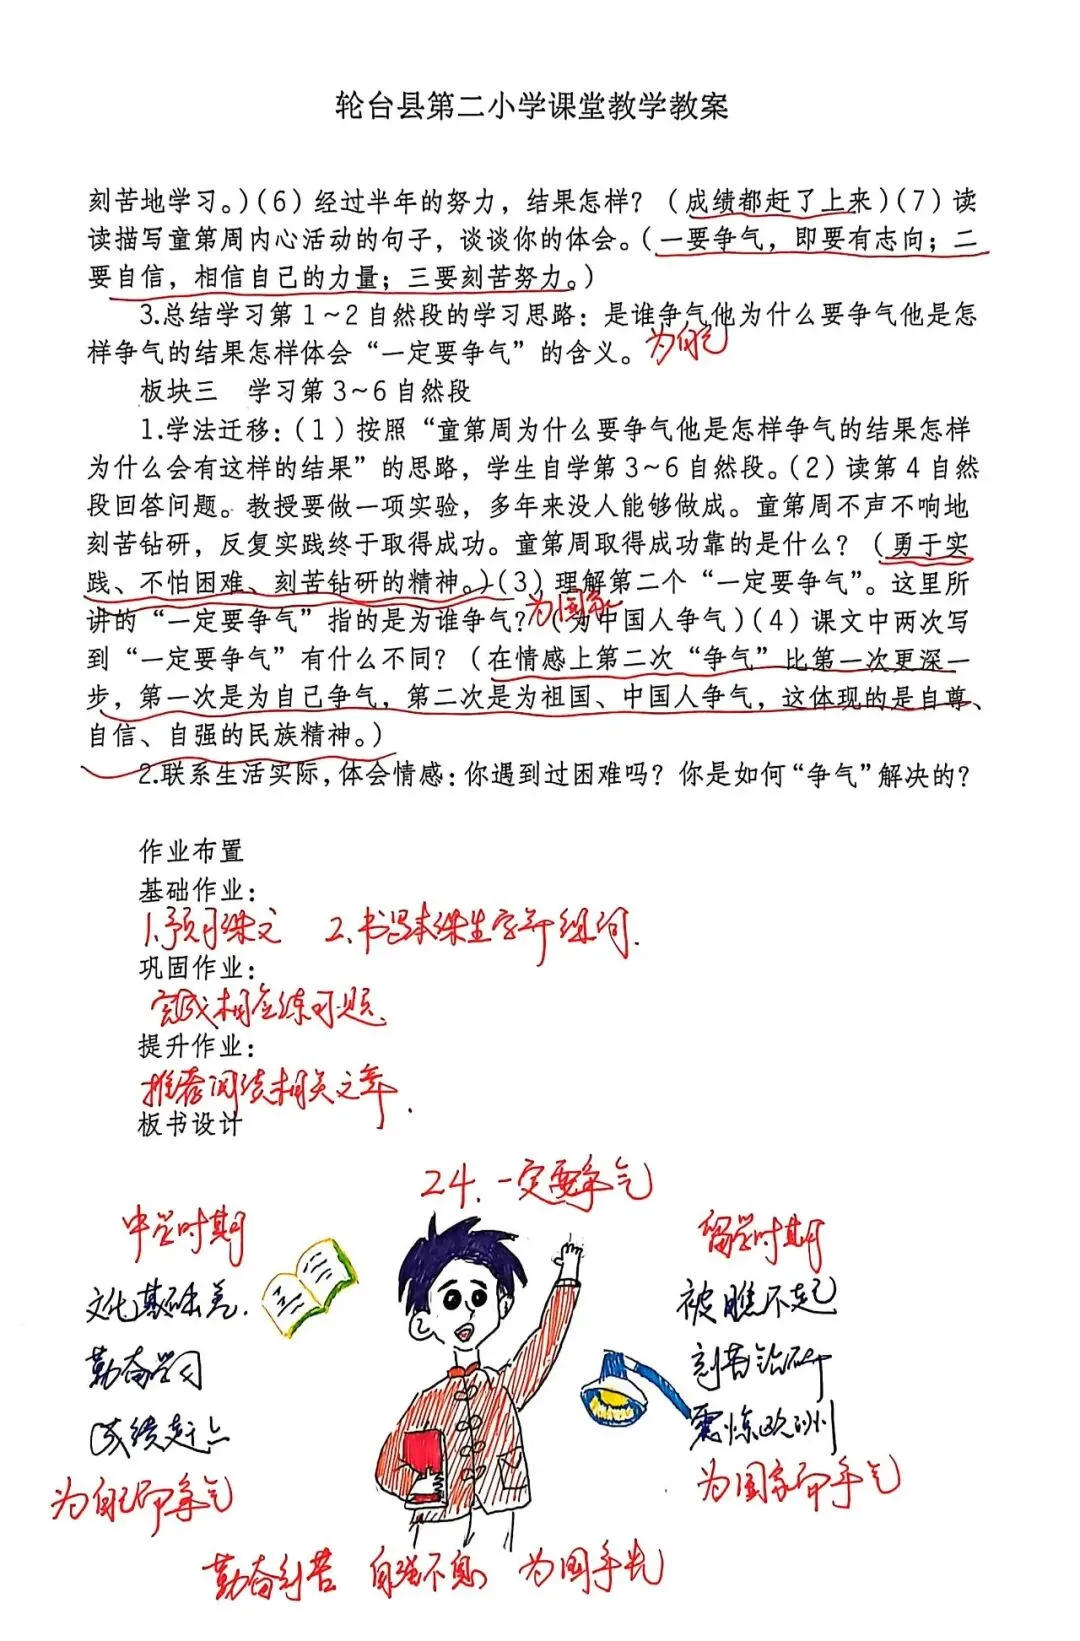 轮台县第二小学课堂教学教案
刻苦地学习。)(6)经过半年的努力，结果怎样？(成绩都赶了上来)(7)读
读描写童第周内心活动的句子，谈谈你的体会。(一要争气，即要有志向；二
要自信，相信自己的力量；三要刻苦努力。)
3.总结学习第1~2自然段的学习思路：是谁争气他为什么要争气他是怎
样争气的结果怎样体会“一定要争气”的含义。
为自己
板块三 学习第3~6自然段
1.学法迁移：(1)按照“童第周为什么要争气他是怎样争气的结果怎样
为什么会有这样的结果”的思路，学生自学第3~6自然段。(2)读第4自然
段回答问题。教授要做一项实验，多年来没人能够做成。童第周不声不响地
刻苦钻研，反复实践终于取得成功。童第周取得成功靠的是什么？(勇于实
践、不怕困难、刻苦钻研的精神。)(3)理解第二个“一定要争气”。这里所
为国家
讲的“一定要争气”指的是为谁争气？(为中国人争气)(4)课文中两次写
到“一定要争气”有什么不同？(在情感上第二次“争气”比第一次更深一
步，第一次是为自己争气，第二次是为祖国、中国人争气，这体现的是自尊、
自信、自强的民族精神。)
2.联系生活实际，体会情感：你遇到过困难吗？你是如何“争气”解决的？
作业布置
基础作业：
1.预习课文 2.书写本课生字并组词.
巩固作业：
完成相应练习题.
提升作业：
推荐阅读相关文章.
板书设计
24.一定要争气
中学时期
文化基础差.
勤奋学习
成绩赶上
为自己而争气
留学时期
被瞧不起
刻苦钻研
震惊欧洲
为国家而争气
勤奋刻苦 自强不息 为国争光